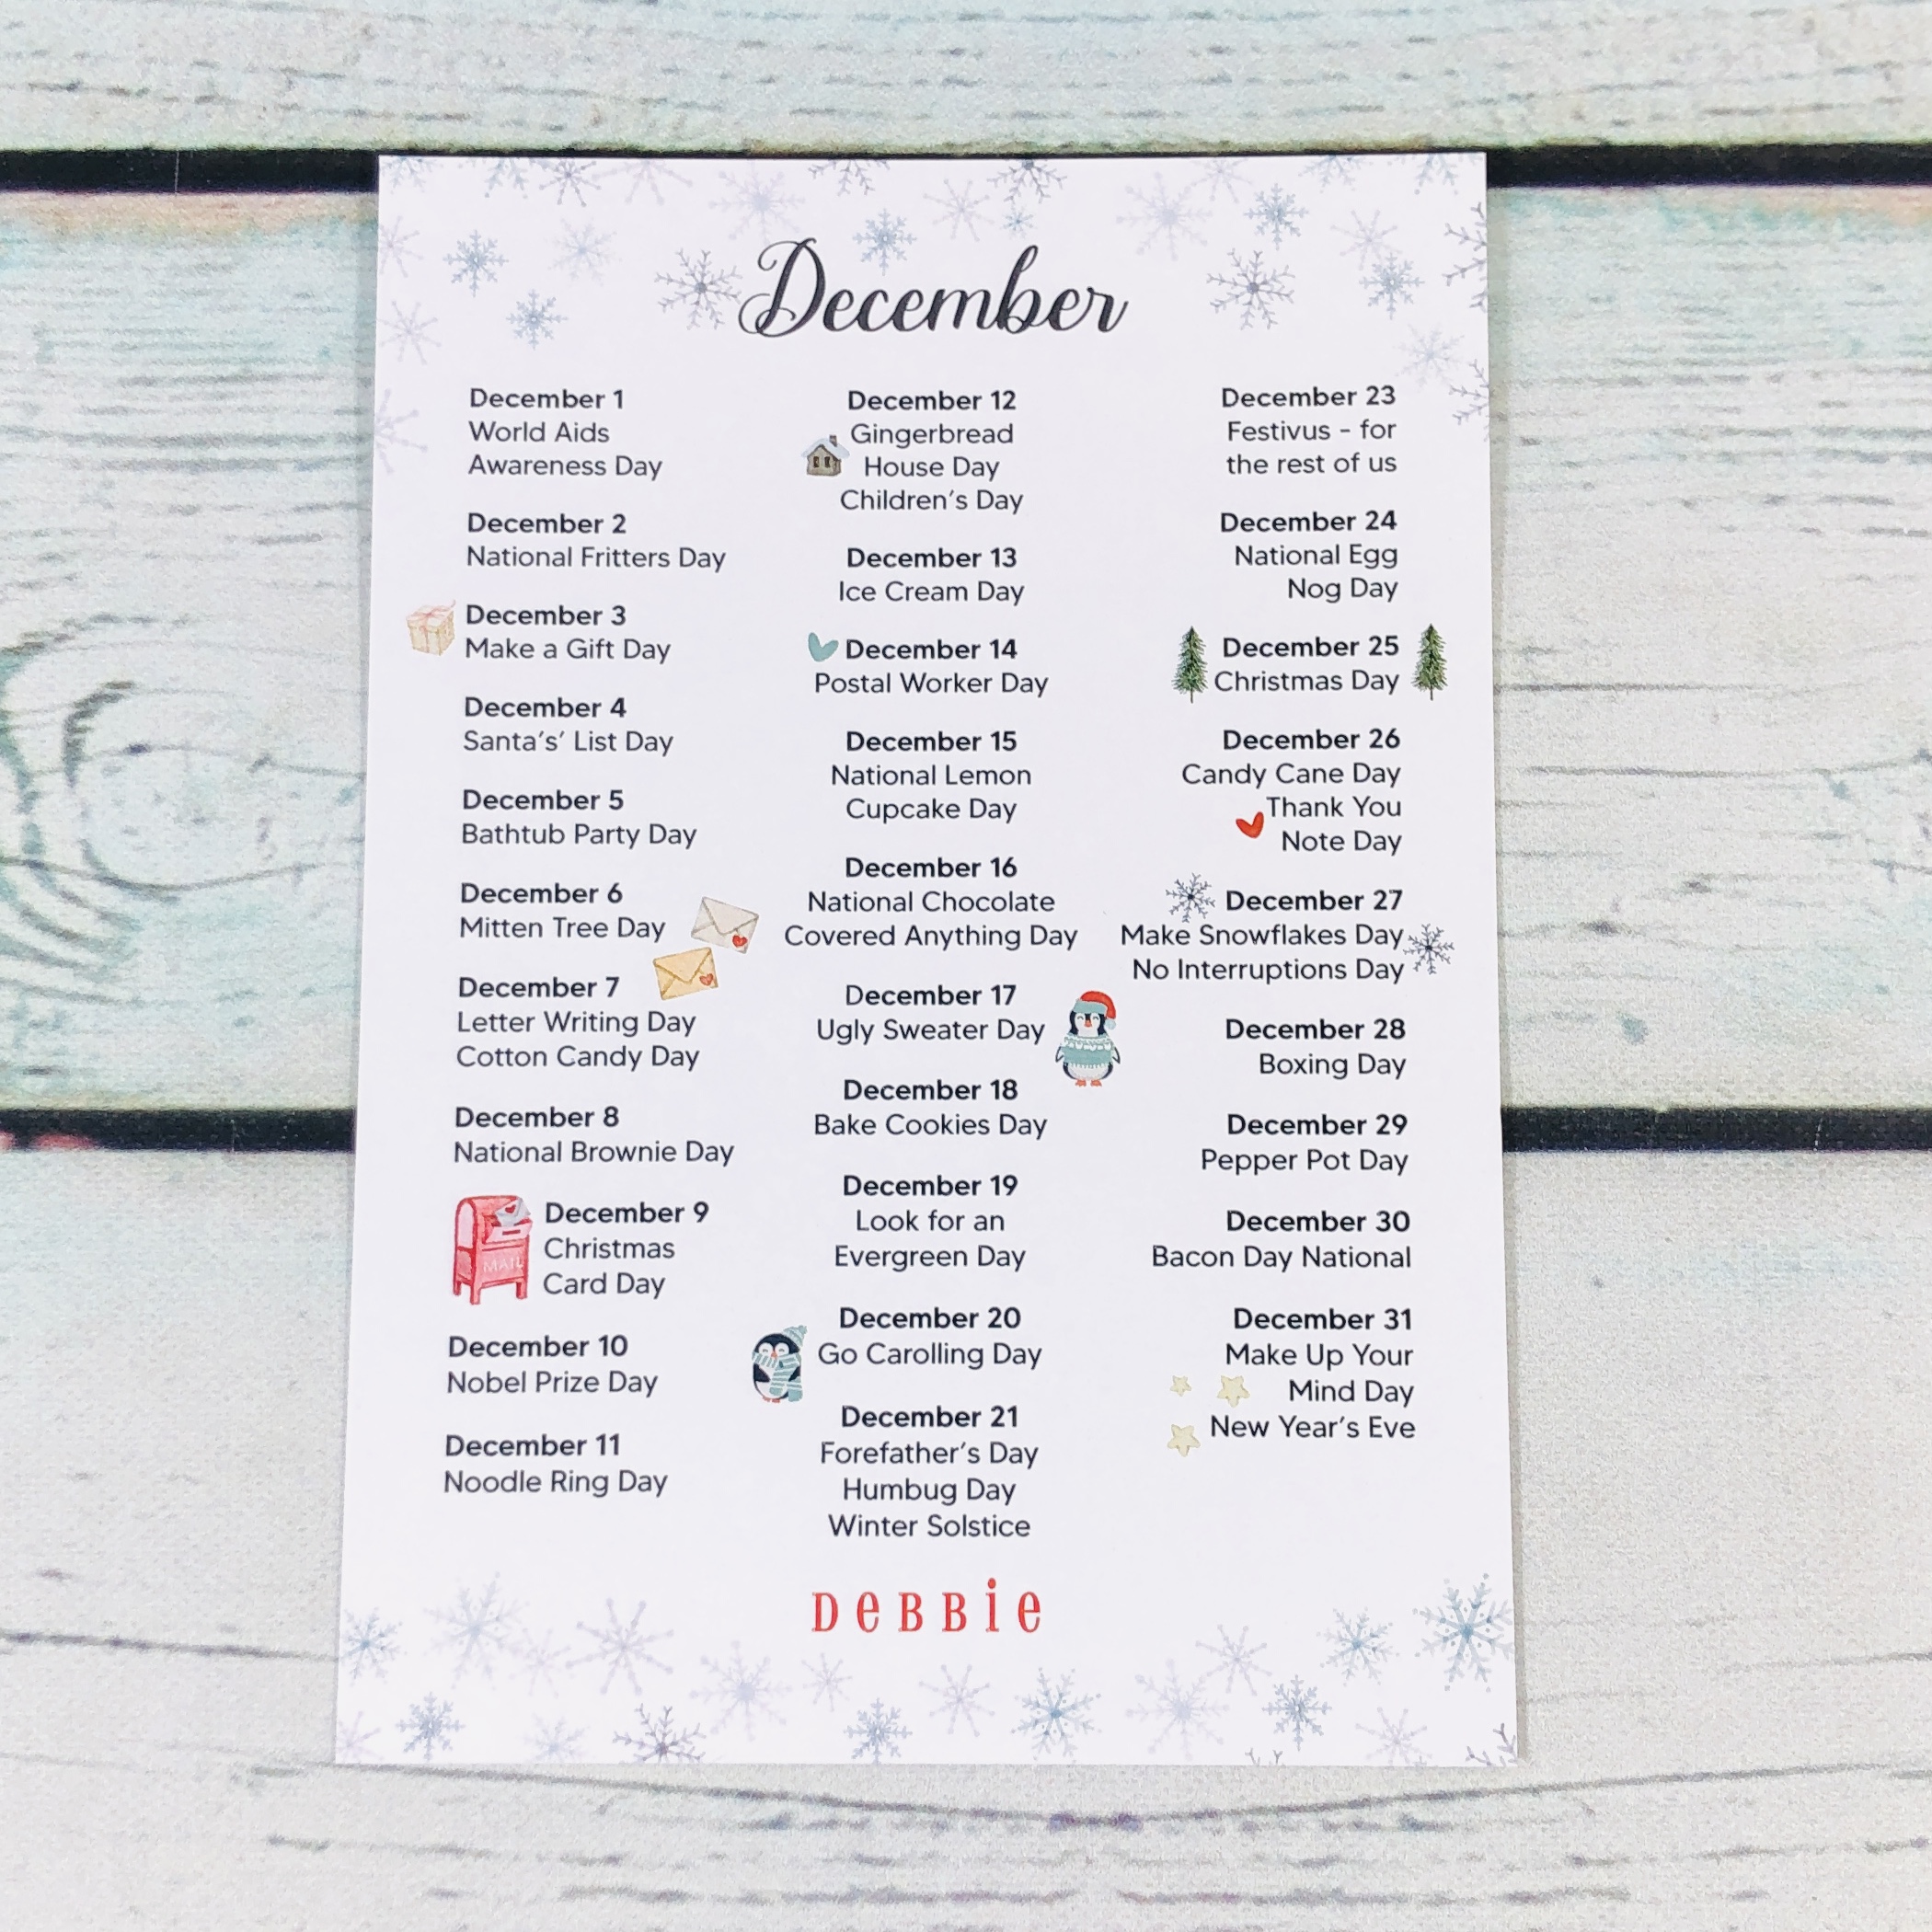 December
December 1
World Aids
Awareness Day
December 2
National Fritters Day
December 3
Make a Gift Day
December 4
Santa's' List Day
December 5
Bathtub Party Day
December 6
Mitten Tree Day
December 7
Letter Writing Day
Cotton Candy Day
December 8
National Brownie Day
MAIL
December 9
Christmas
Card Day
December 10
Nobel Prize Day
December 11
Noodle Ring Day
December 12
Gingerbread
House Day
Children's Day
December 13
Ice Cream Day
December 14
Postal Worker Day
December 15
National Lemon
Cupcake Day
December 16
National Chocolate
Covered Anything Day
December 17
Ugly Sweater Day
December 18
Bake Cookies Day
December 19
Look for an
Evergreen Day
December 20
Go Carolling Day
December 21
Forefather's Day
Humbug Day
Winter Solstice
December 23
Festivus - for
the rest of us
December 24
National Egg
Nog Day
December 25
Christmas Day
December 26
Candy Cane Day
Thank You
Note Day
December 27
Make Snowflakes Day
No Interruptions Day
December 28
Boxing Day
December 29
Pepper Pot Day
December 30
Bacon Day National
December 31
Make Up Your
Mind Day
New Year's Eve
DeBBie